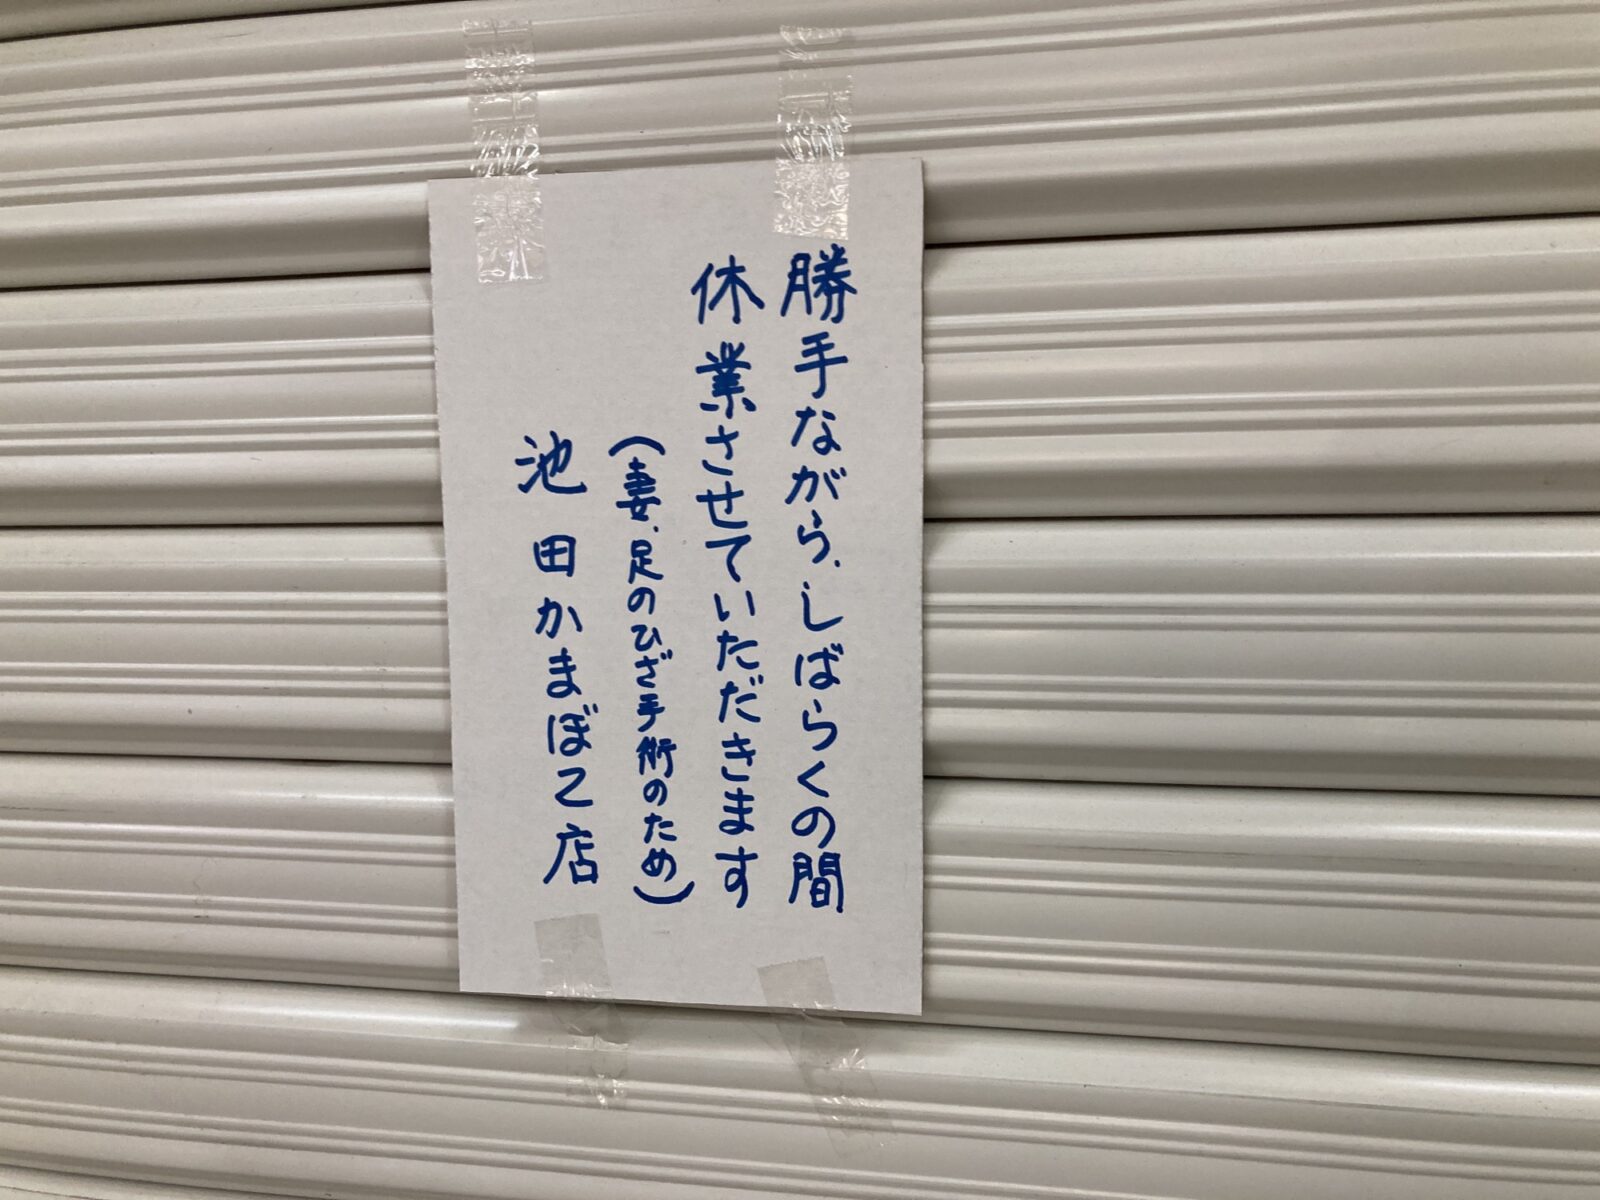 勝手ながら、しばらくの間
休業させていただきます
（妻、足のひざ手術のため）
池田かまぼこ店